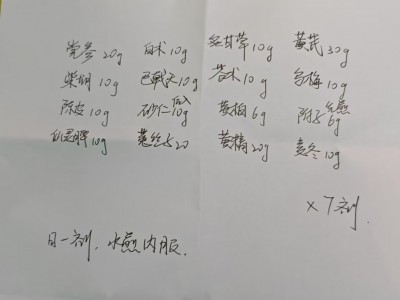 党参20g 白术10g 炙甘草10g 黄芪30g
柴胡10g 巴戟天10g 苍术10g 乌梅10g
陈皮10g 砂仁后入10g 黄柏6g 附子先煎6g
10g 菟丝子20 黄精20g 麦冬10g
×7剂.
日一剂.水煎内服.